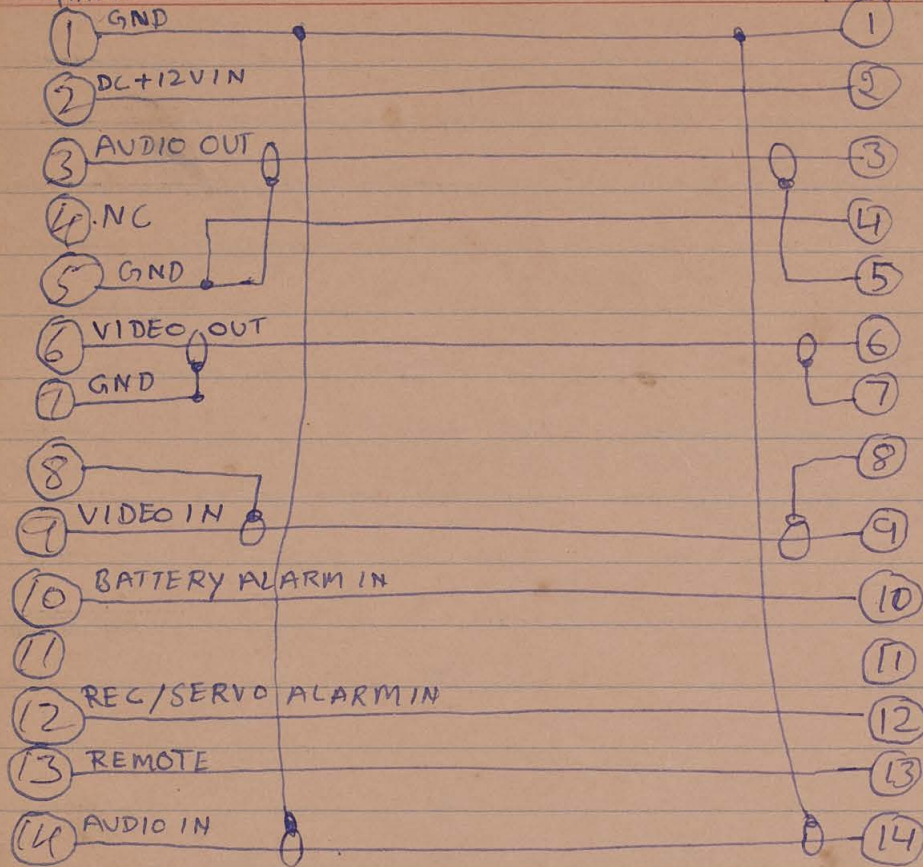 1 GND 1
2 DC+12V IN 2
3 AUDIO OUT 3
4 .NC 4
5 GND 5
6 VIDEO OUT 6
7 GND 7
8 8
9 VIDEO IN 9
10 BATTERY ALARM IN 10
11 11
12 REC/SERVO ALARM IN 12
13 REMOTE 13
14 AUDIO IN 14